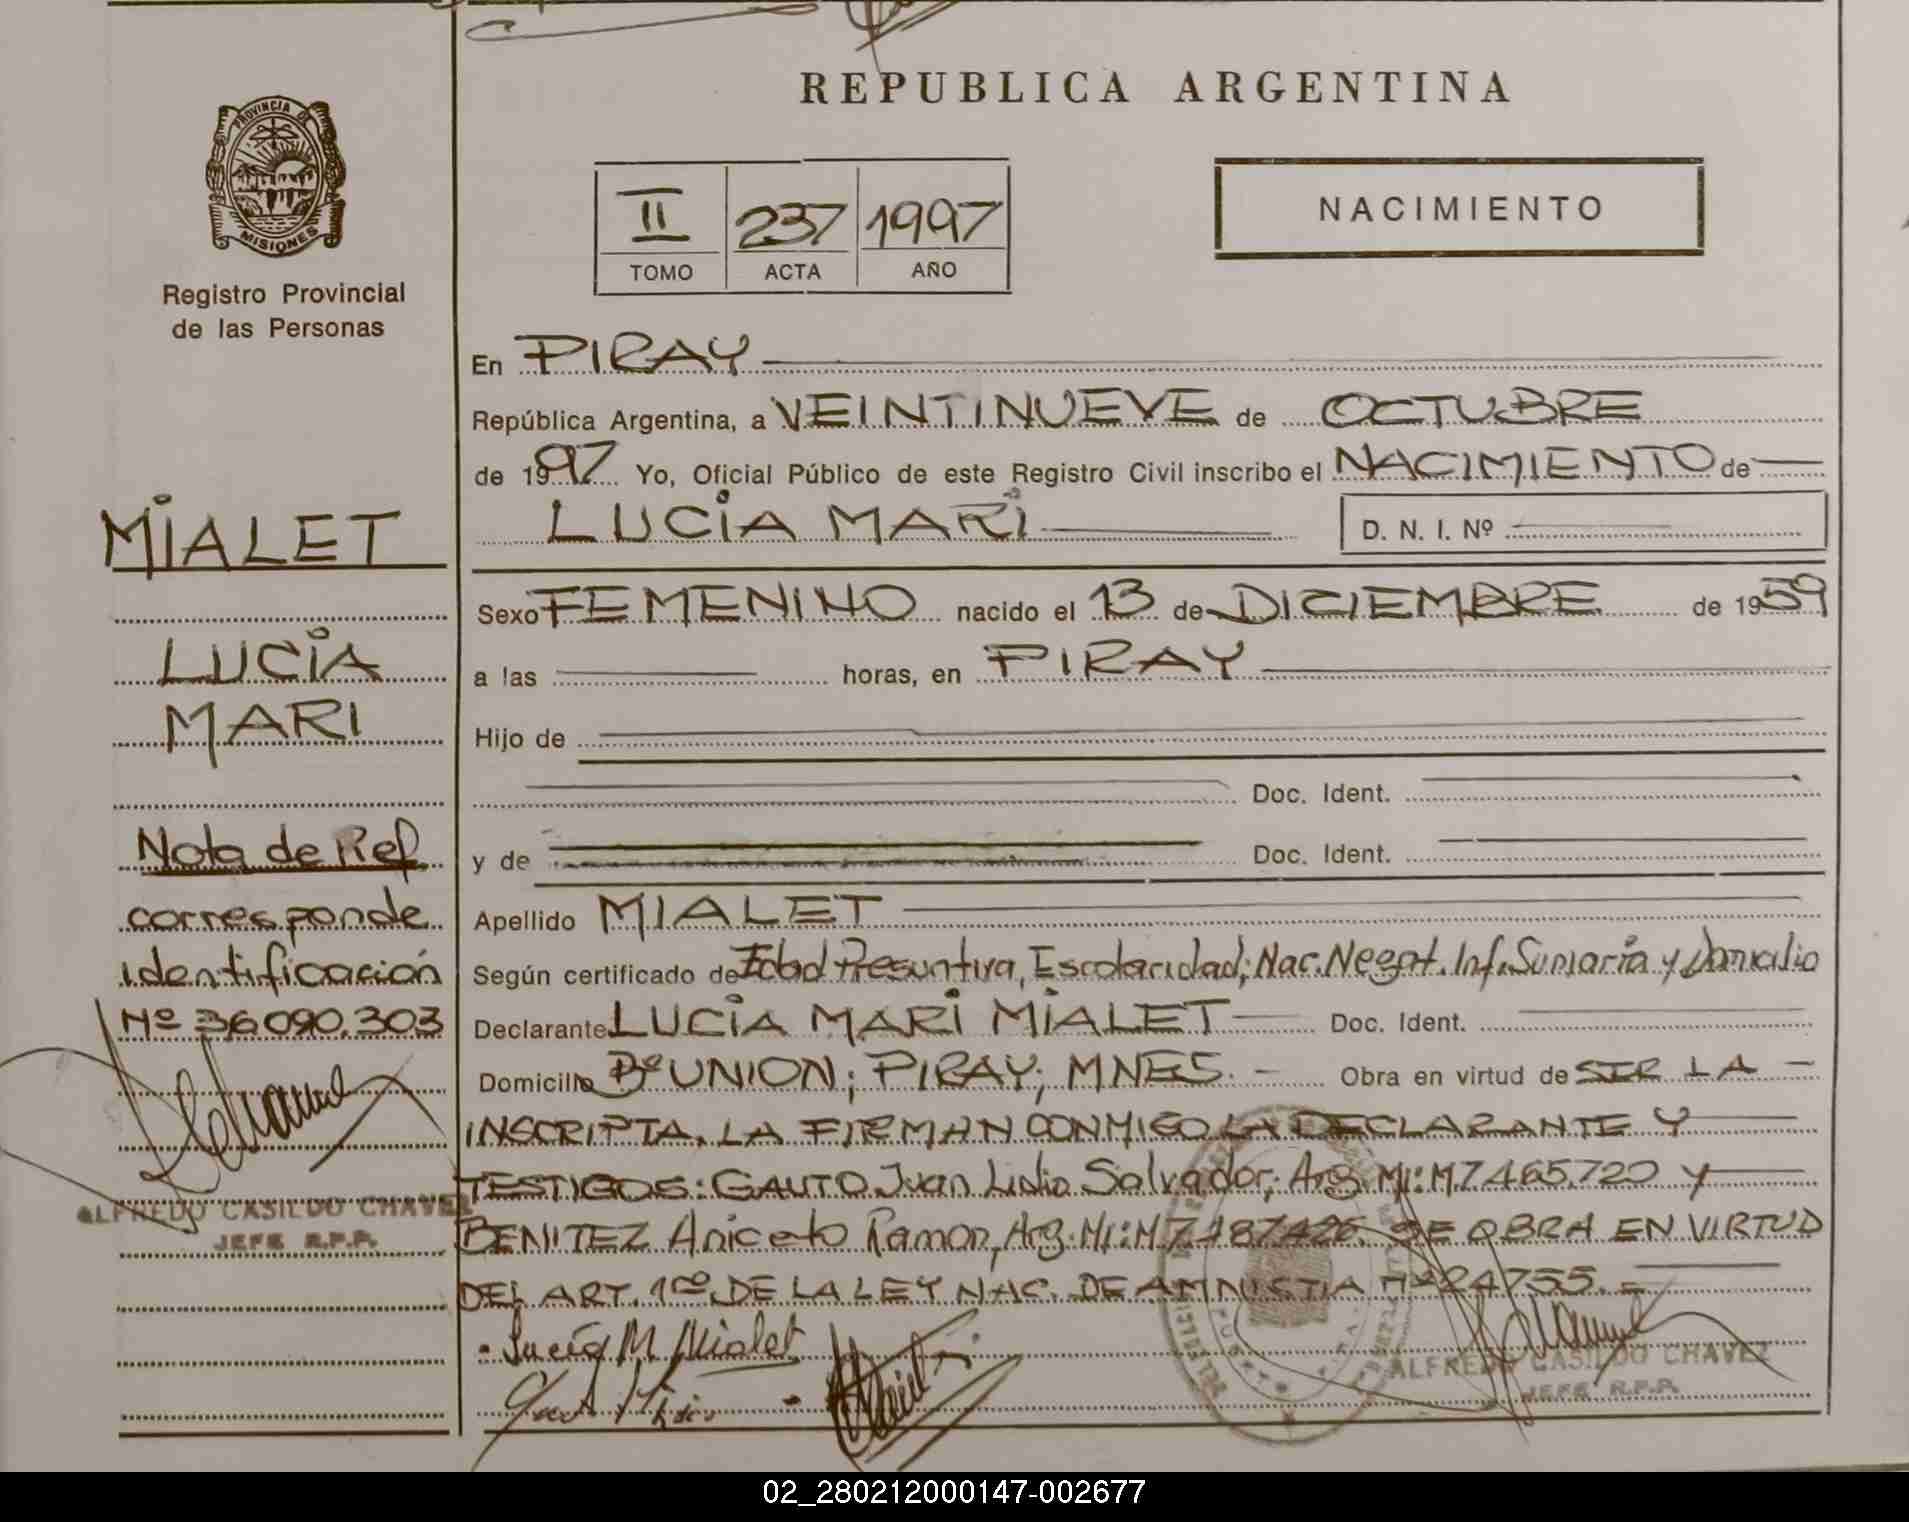 REPUBLICA ARGENTINA
PROVINCIA DE
MISIONES
Registro Provincial
de las Personas
II 237 1997
TOMO ACTA AÑO
NACIMIENTO
En PIRAY
República Argentina, a VEINTINUEVE de OCTUBRE
de 1997 Yo, Oficial Público de este Registro Civil inscribo el NACIMIENTO de
LUCIA MARI D. N. I. Nº
Sexo FEMENINO nacido el 13 de DICIEMBRE de 1959
a las horas, en PIRAY
Hijo de
Doc. Ident.
y de Doc. Ident.
Apellido MIALET
Según certificado de Edad Presuntiva, Escolaridad, Nac. Negat. Inf. Sumaria y Domicilio
Declarante LUCIA MARI MIALET Doc. Ident.
Domicilio Bº UNION; PIRAY; MNES. - Obra en virtud de SER LA -
INSCRIPTA. LA FIRMAN CONMIGO LA DECLARANTE Y
TESTIGOS: GAUTO Juan Lidio Salvador, Arg. MI: M7.465.720 y
BENITEZ Aniceto Ramon, Arg. MI: M7.487.426. SE OBRA EN VIRTUD
DEL ART. 1ro. DE LA LEY NAC. DE AMNISTIA Nº 24755. -
Lucía M Mialet
ALFREDO CASILDO CHAVEZ
JEFE R.P.P.
MIALET
LUCIA
MARI
Nota de Ref
corresponde
identificación
Nº 36.090.303
ALFREDO CASILDO CHAVEZ
JEFE R.P.P.
02_280212000147-002677